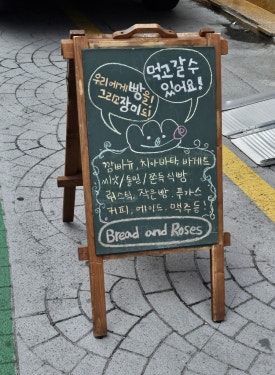 우리에게 빵을!
그리고 장미도!
먹고갈 수
있어요!
깜빠뉴, 치아바타, 바게트
씨앗/통밀/쫀득식빵
러스틱, 작은빵, 풀가스
커피, 에이드, 맥주 등!
Bread and Roses